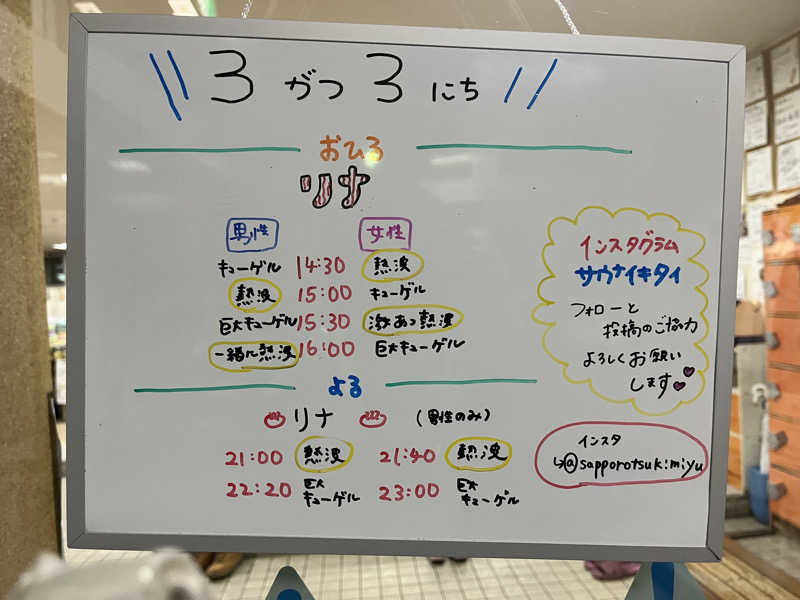 3がつ3にち
おひる
リナ
男性 女性
キューゲル 14:30 熱波
熱波 15:00 キューゲル
巨大キューゲル 15:30 激あつ熱波
一緒に熱波 16:00 巨大キューゲル
よる
♨ リナ ♨ (男性のみ)
21:00 熱波 21:40 熱波
22:20 巨大キューゲル 23:00 巨大キューゲル
インスタグラム
サウナイキタイ
フォローと
投稿のご協力
よろしくお願い
します
インスタ
↳@sapporotsukimiyu